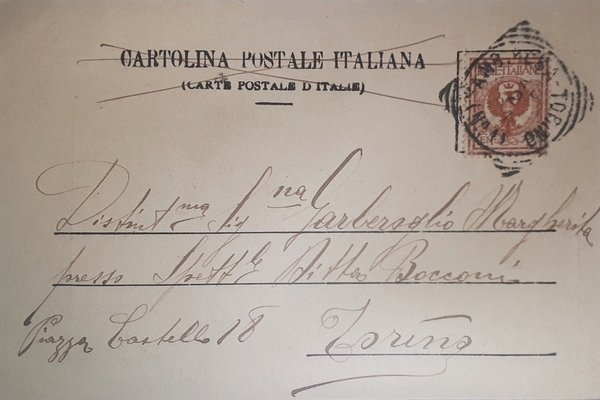 CARTOLINA POSTALE ITALIANA
(CARTE POSTALE D'ITALIE)
Distint.ma Sig.na Garberoglio Margherita
presso Spett.le Ditta Bocconi
Piazza Castello 18 Torino